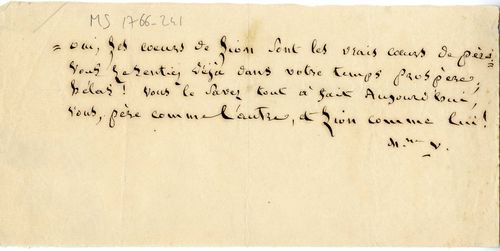 MS 1766-241
= oui, les coeurs de Lion sont les vrais coeurs de père =
Vous le sentiez déjà dans votre temps prospère,
hélas! Vous le savez tout à fait Aujourd'hui,
Vous, père comme l'autre, et Lion comme lui!
M.me V.